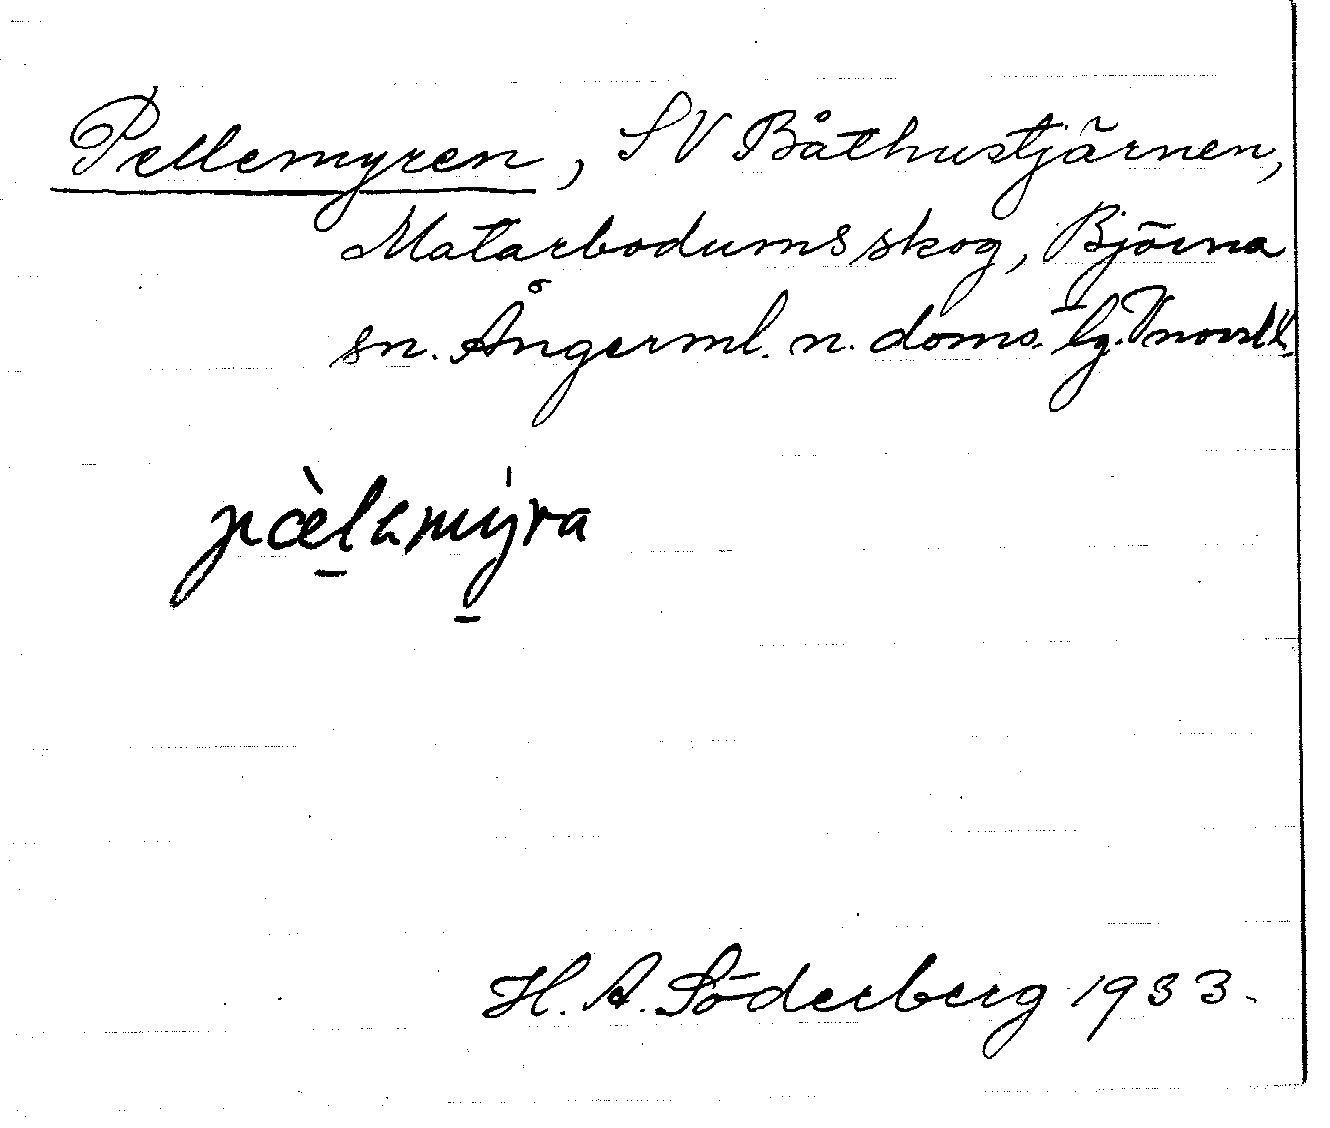 Pellemyren, SV Båthustjärnen,
Matarbodums skog, Björna
sn. Ångerml. n. doms. lg. Vnorrl l.
pæ̀lamýra
H. A. Söderberg 1933.